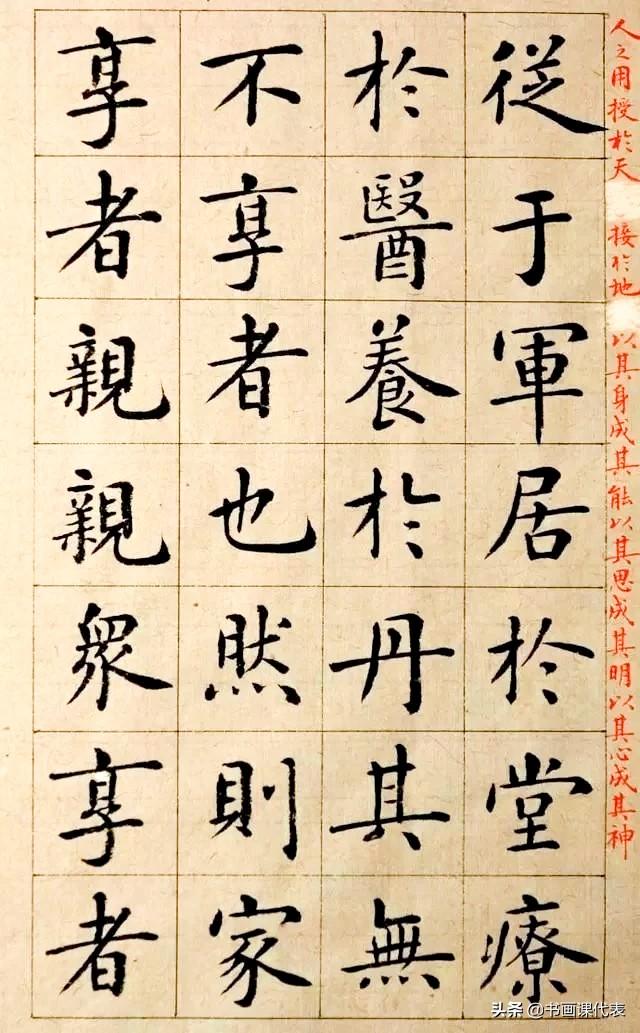 人之用授於天 接於地 以其身成其能以其思成其明以其心成其神
從于軍居於堂療
於醫養於丹其無
不享者也然則家
享者親親眾享者
头条 @书画课代表